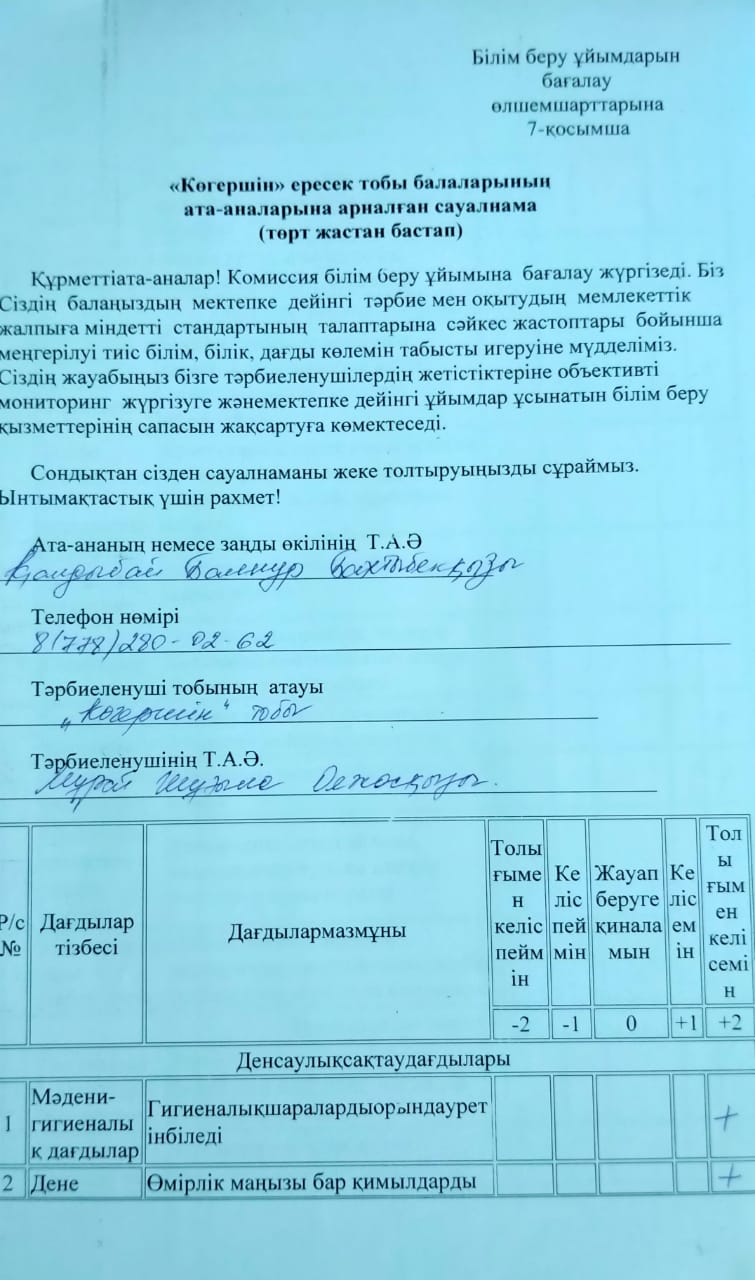 Білім беру ұйымдарын
бағалау
өлшемшарттарына
7-қосымша
«Көгершін» ересек тобы балаларының
ата-аналарына арналған сауалнама
(төрт жастан бастап)
Құрметтіата-аналар! Комиссия білім беру ұйымына бағалау жүргізеді. Біз
Сіздің балаңыздың мектепке дейінгі тәрбие мен оқытудың мемлекеттік
жалпыға міндетті стандартының талаптарына сәйкес жастоптары бойынша
меңгерілуі тиіс білім, білік, дағды көлемін табысты игеруіне мүдделіміз.
Сіздің жауабыңыз бізге тәрбиеленушілердің жетістіктеріне объективті
мониторинг жүргізуге жәнемектепке дейінгі ұйымдар ұсынатын білім беру
қызметтерінің сапасын жақсартуға көмектеседі.
Сондықтан сізден сауалнаманы жеке толтыруыңызды сұраймыз.
Ынтымақтастық үшін рахмет!
Ата-ананың немесе заңды өкілінің Т.А.Ә
Қалдыбай Балнур Бахтыбекқызы
Телефон нөмірі
8(778)280-02-62
Тәрбиеленуші тобының атауы
„Көгершін" тобы
Тәрбиеленушінің Т.А.Ә.
Мұрат Шұғыла Олжасқызы.
Р/с
№
Дағдылар
тізбесі
Дағдылармазмұны
Толы
ғыме
н
келіс
пейм
ін
Ке
ліс
пей
мін
Жауап
беруге
қинала
мын
Ке
ліс
ем
ін
Тол
ы
ғым
ен
келі
семі
н
-2 -1 0 +1 +2
Денсаулықсақтаудағдылары
1
Мәдени-
гигиеналы
қ дағдылар
Гигиеналықшаралардыорындаурет
інбіледі
+
2 Дене Өмірлік маңызы бар қимылдарды +